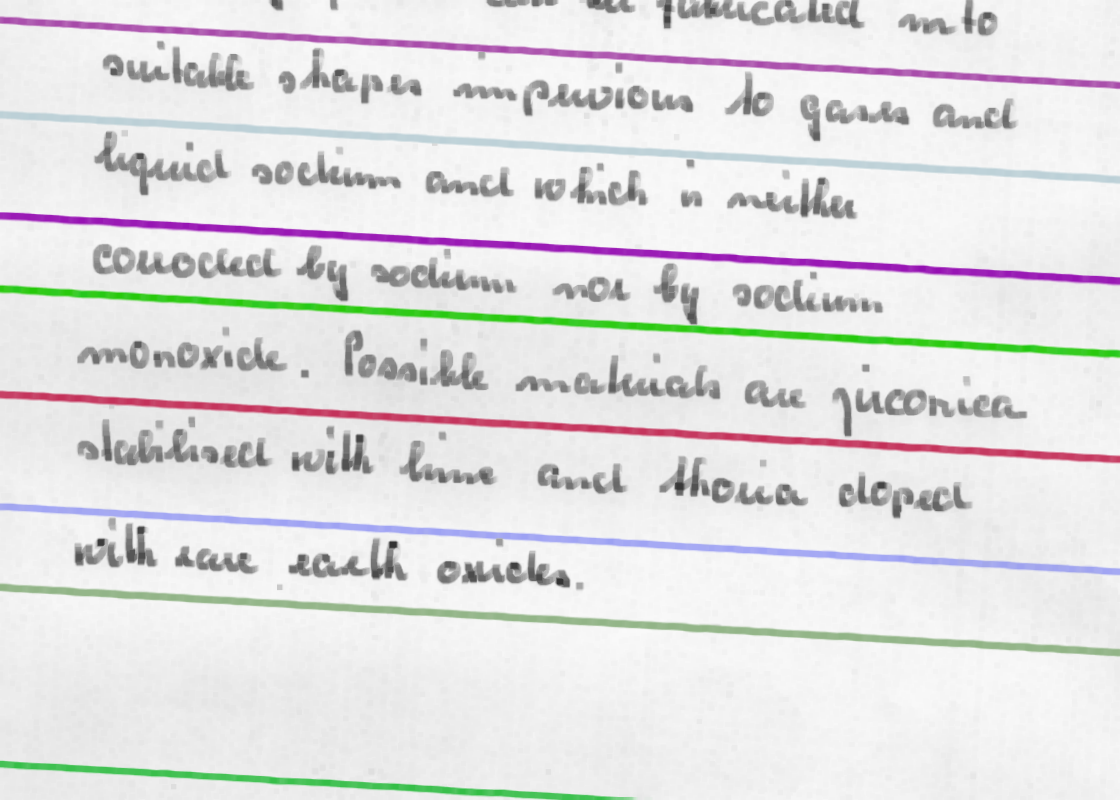 can be fabricated into
suitable shapes impervious to gases and
liquid sodium and which is neither
corroded by sodium nor by sodium
monoxide. Possible materials are zirconica
stabilised with lime and thoria doped
with rare earth oxides.